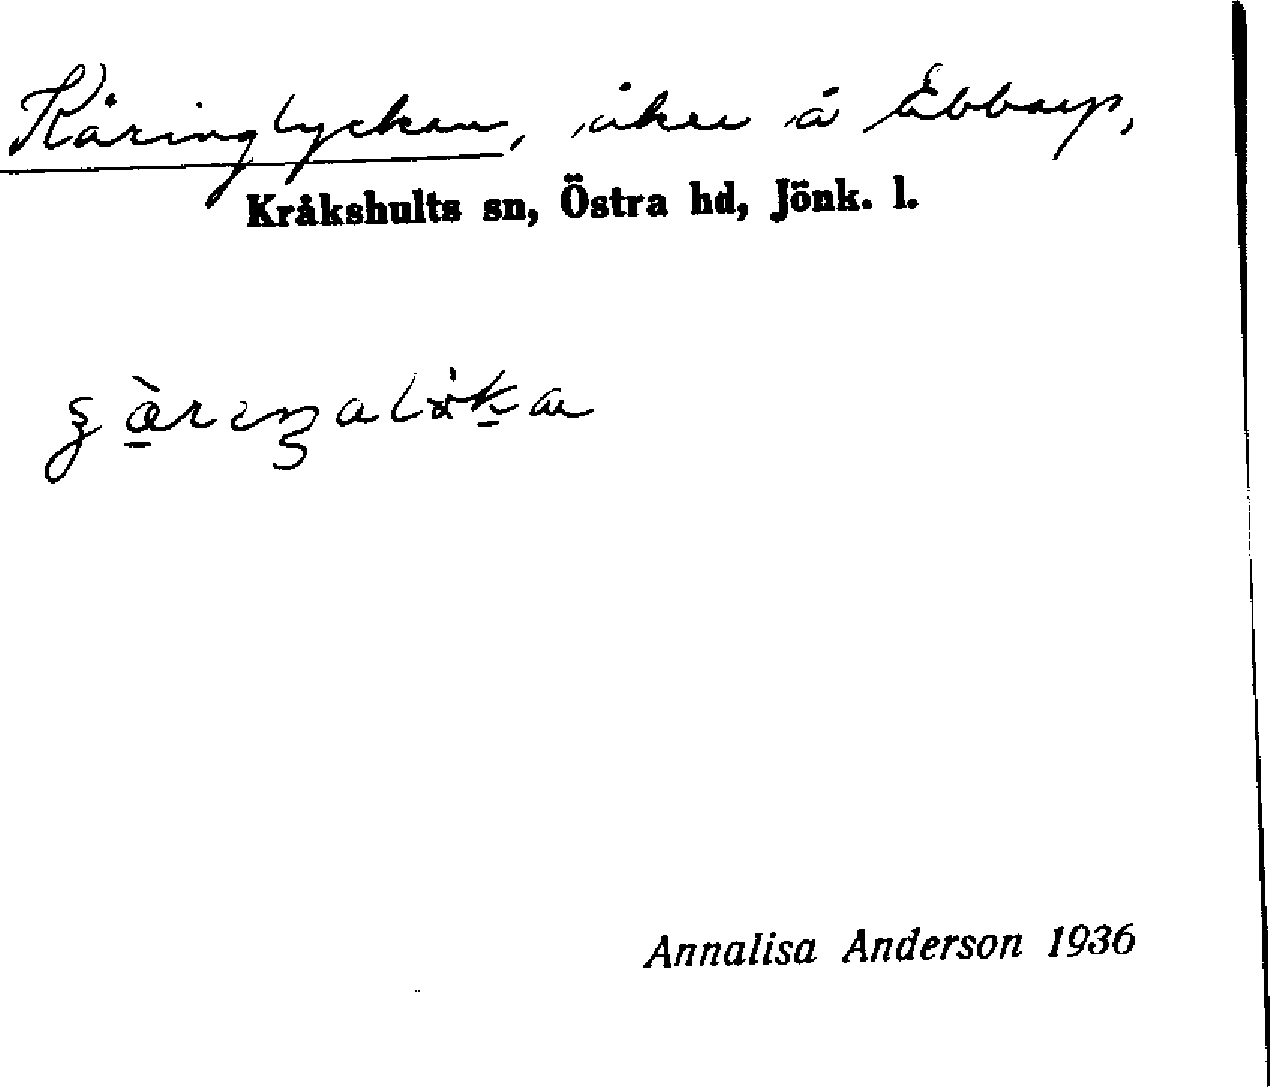 Käringlyckan, åker å Ebbarp,
Kråkshults sn, Östra hd, Jönk. l.
Annalisa Anderson 1936